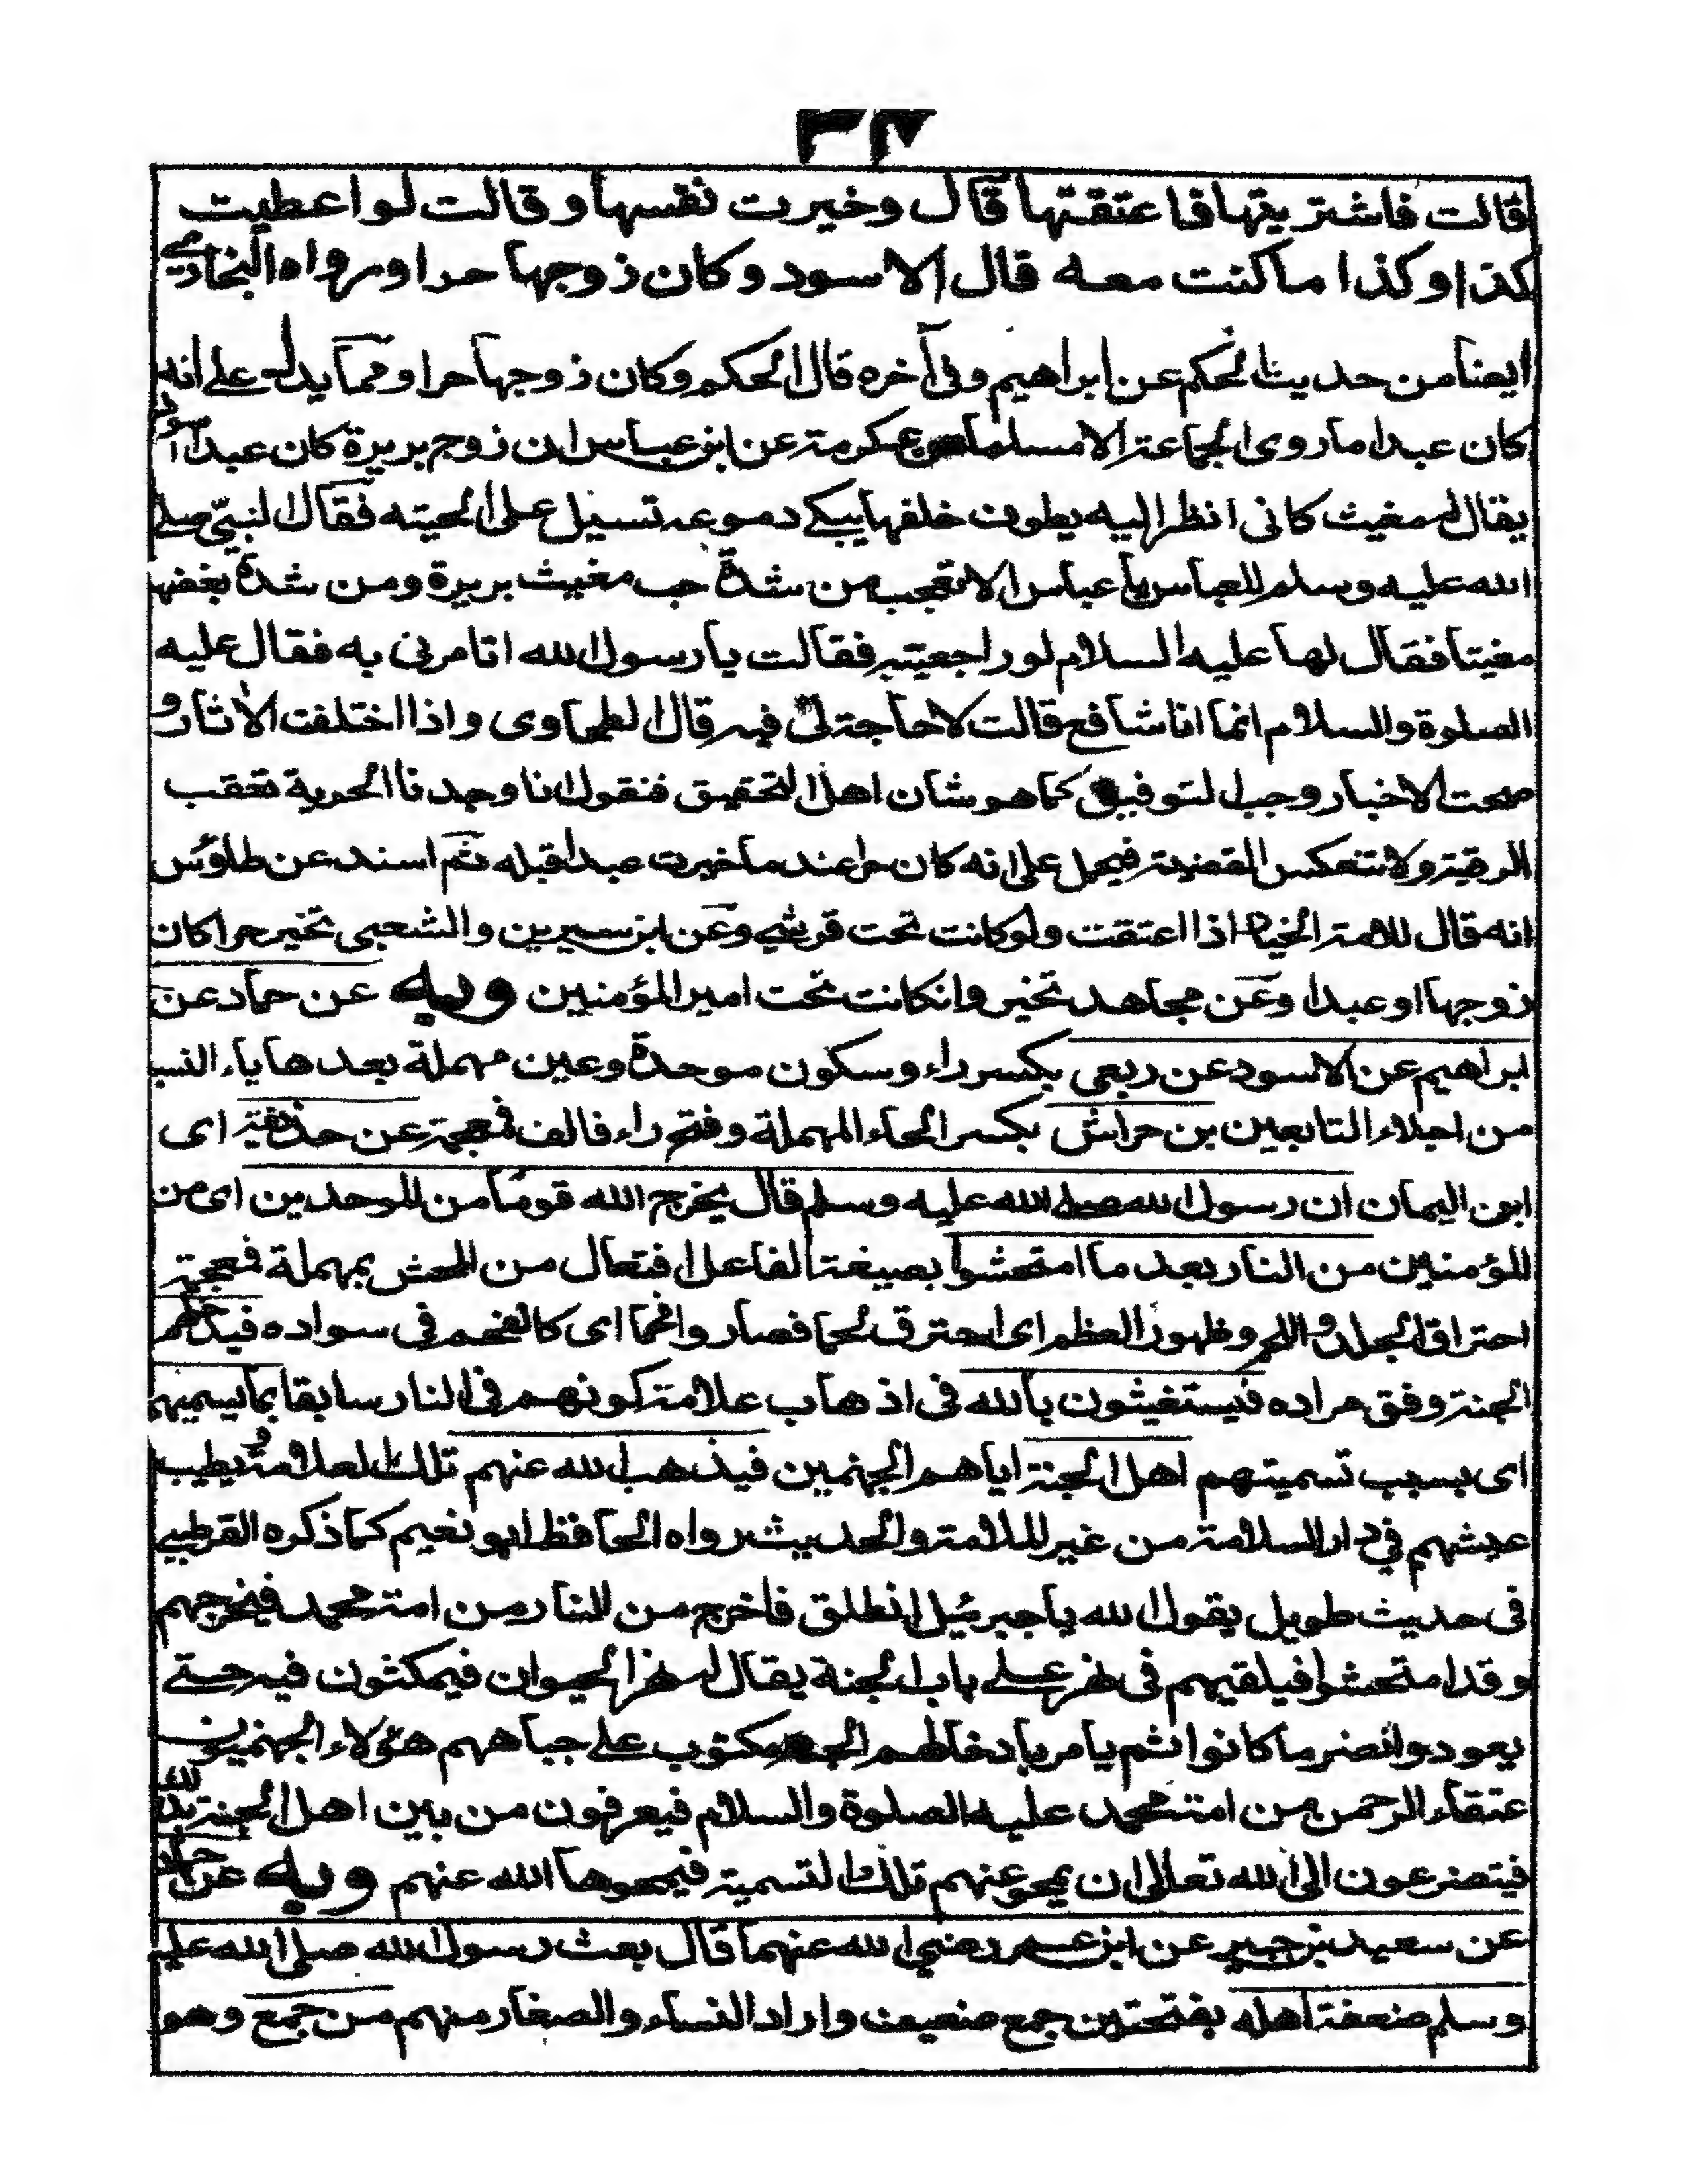 ٣٧
قالت فاشتريتها فاعتقتها قال وخيرت نفسها وقالت لو اعطيت
كذا وكذا ما كنت معه قال الاسود وكان زوجها حرا ورواه البخاري
ايضا من حديث الحكم عن ابراهيم وفي آخره قال الحكم وكان زوجها حرا ومما يدل على انه
كان عبدا ما روى الجماعة الا مسلما عن عكرمة عن ابن عباس ان زوج بريرة كان عبدا اسود
يقال له مغيث كاني انظر اليه يطوف خلفها يبكي دموعه تسيل على لحيته فقال النبي صلى
الله عليه وسلم للعباس يا عباس الا تعجب من شدة حب مغيث بريرة ومن شدة بغضها
مغيثا فقال لها عليه السلام لو راجعتيه فقالت يا رسول الله اتامرني به فقال عليه
الصلوة والسلام انما انا شافع قالت لا حاجة لي فيه قال الطحاوى واذا اختلفت الاثار و
صحت الاخبار وجب التوفيق كما هو شان اهل التحقيق فنقول انا وجدنا الحرية تعقب
الرقية ولا تنعكس القضية فيحمل على انه كان حرا عند ما خيرت عبدا قبله ثم اسند عن طاوس
انه قال للامة الخيار اذا اعتقت ولو كانت تحت قرشي وعن ابن سيرين والشعبي تخير حرا كان
زوجها او عبدا وعن مجاهد تخير وانكانت تحت امير المؤمنين وبه عن حماد عن
ابراهيم عن الاسود عن ربعي بكسر راء وسكون موحدة وعين مهملة بعدها ياء النسبة
من اجلاء التابعين بن حراش بكسر الحاء المهملة وفتح راء فالف فمعجمة عن حذيفة اى
ابن اليمان ان رسول الله صلى الله عليه وسلم قال يخرج الله قوما من الموحدين اى من
المؤمنين من النار بعد ما امتحشوا بصيغة الفاعل افتعال من المحش بمهملة فمعجمة
احتراق الجلد واللحم وظهور العظم اى احترق لحما فصاروا فحما اى كالفحم في سواده فيدخلهم
الجنة وفق مراده فيستغيثون بالله في اذهاب علامة كونهم في النار سابقا بما يسميهم
اى بسبب تسميتهم اهل الجنة اياهم الجهنمين فيذهب الله عنهم تلك العلامة ويطيب
عيشهم في دار السلامة من غير الملامة والحديث رواه الحافظ ابو نعيم كما ذكره القرطبي
في حديث طويل يقول الله يا جبرئيل انطلق فاخرج من النار من امة محمد فيخرجهم
وقد امتحشوا فيلقيهم في نهر على باب الجنة يقال له نهر الحيوان فيمكثون فيه حتى
يعودوا انضر ما كانوا ثم يامر بادخالهم الجنة مكتوب على جباههم هؤلاء الجهنميون
عتقاء الرحمن من امة محمد عليه الصلوة والسلام فيعرفون من بين اهل الجنة بذلك
فيتضرعون الى الله تعالى ان يمحو عنهم تلك التسمية فيمحوها الله عنهم وبه عن حماد
عن سعيد بن جبير عن ابن عمر رضي الله عنهما قال بعث رسول الله صلى الله عليه
وسلم ضعفة اهله بفتحتين جمع ضعيف واراد النساء والصغار منهم من جمع وهو